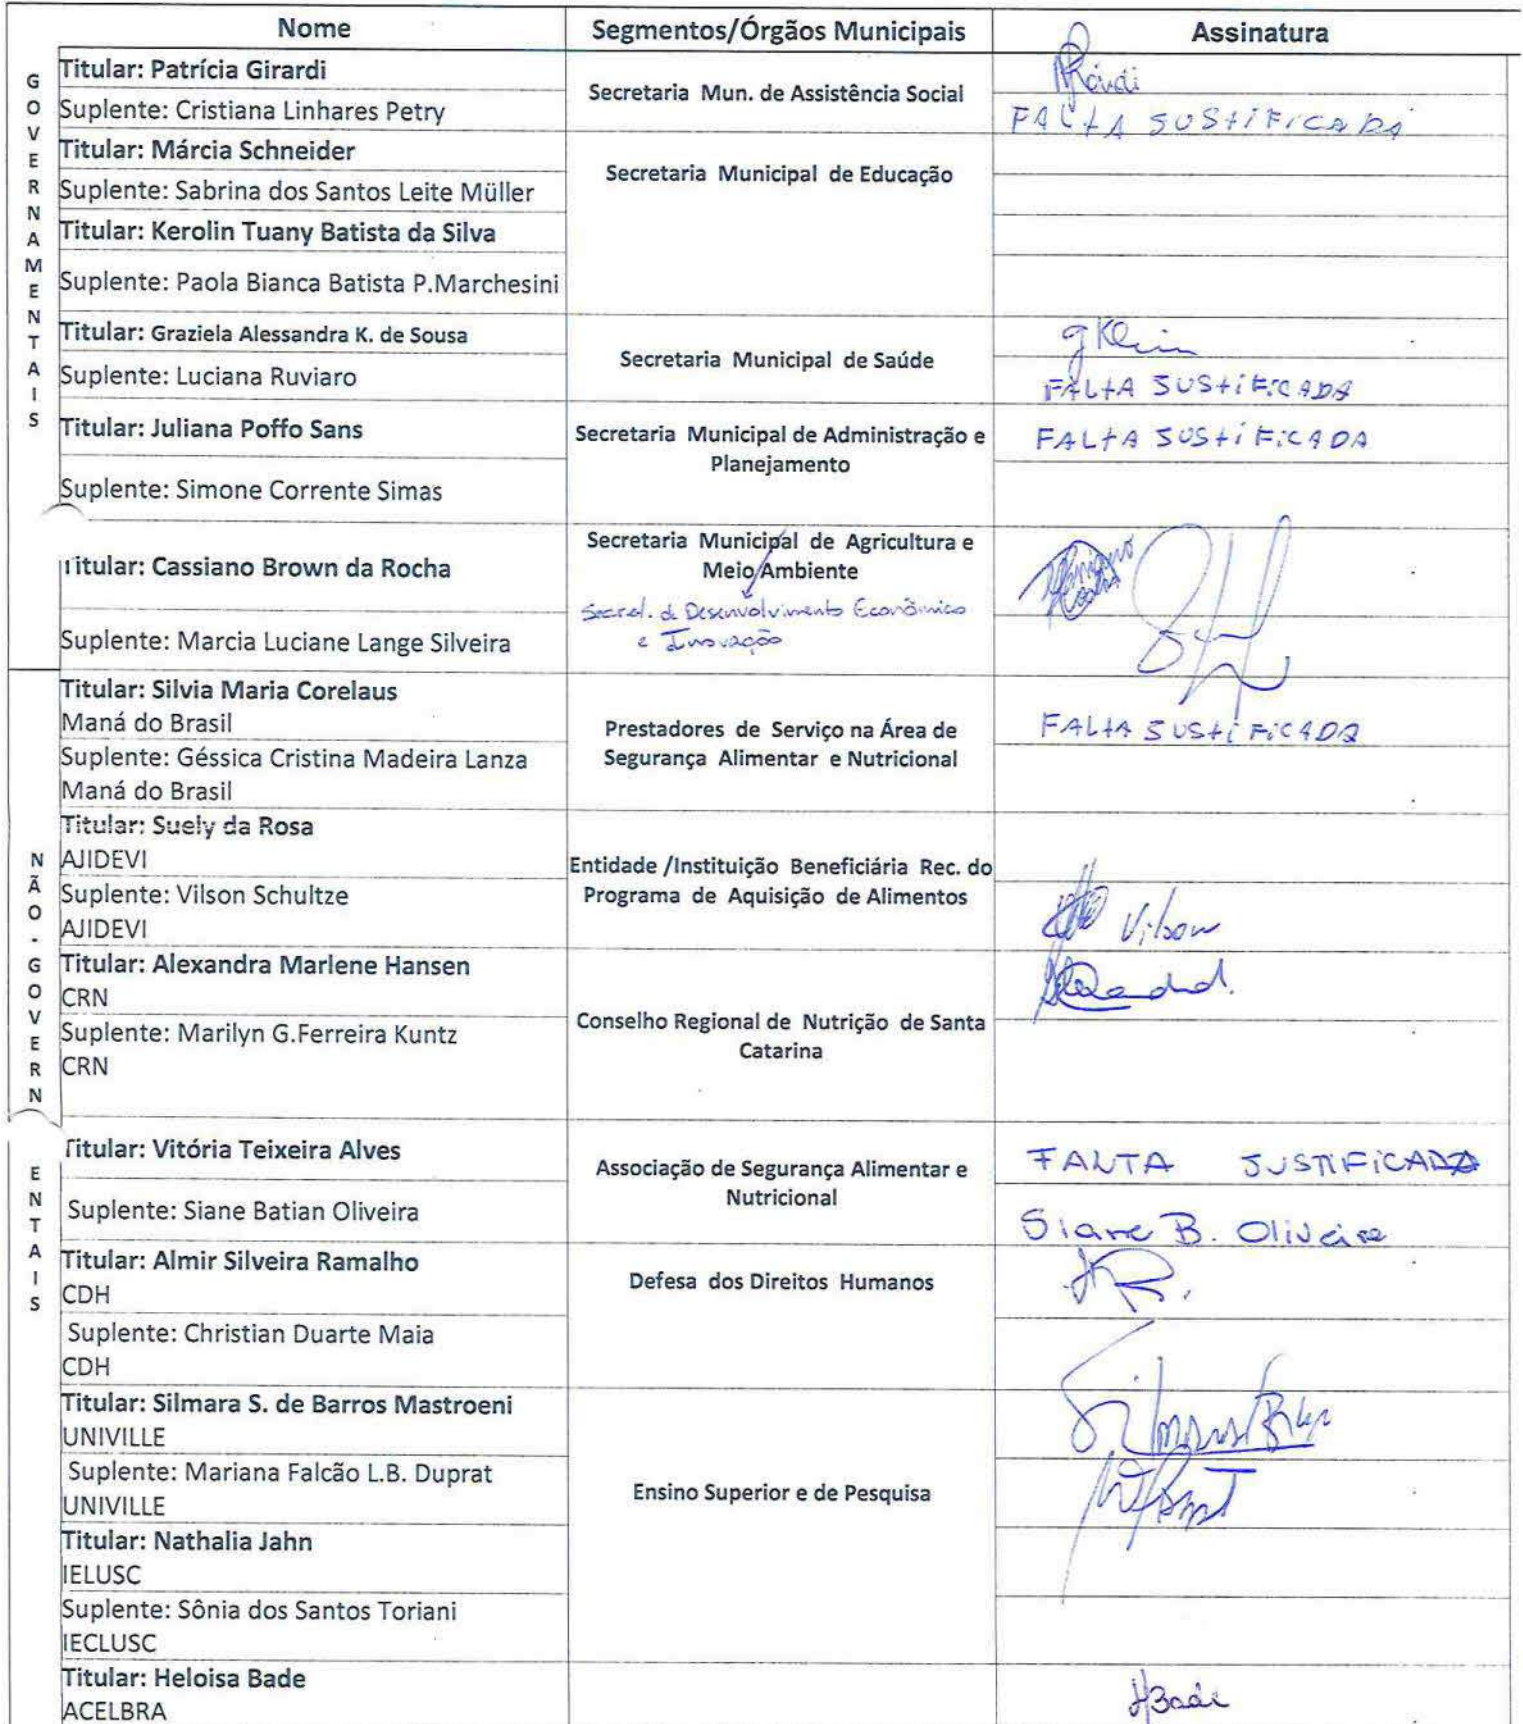 Nome Segmentos/Órgãos Municipais Assinatura
GOVERNAMENTAIS
Titular: Patrícia Girardi
Secretaria Mun. de Assistência Social
Suplente: Cristiana Linhares Petry
FALTA JUSTIFICADA
Titular: Márcia Schneider
Secretaria Municipal de Educação
Suplente: Sabrina dos Santos Leite Müller
Titular: Kerolin Tuany Batista da Silva
Suplente: Paola Bianca Batista P.Marchesini
Titular: Graziela Alessandra K. de Sousa
gKlein
Secretaria Municipal de Saúde
Suplente: Luciana Ruviaro
FALTA JUSTIFICADA
Titular: Juliana Poffo Sans
Secretaria Municipal de Administração e
Planejamento
FALTA JUSTIFICADA
Suplente: Simone Corrente Simas
Titular: Cassiano Brown da Rocha
Secretaria Municipal de Agricultura e
Meio Ambiente
Secret. de Desenvolvimento Econômico
e Inovação
Suplente: Marcia Luciane Lange Silveira
NÃO-GOVERN
Titular: Silvia Maria Corelaus
Maná do Brasil
Prestadores de Serviço na Área de
Segurança Alimentar e Nutricional
FALTA JUSTIFICADA
Suplente: Géssica Cristina Madeira Lanza
Maná do Brasil
Titular: Suely da Rosa
AJIDEVI
Entidade /Instituição Beneficiária Rec. do
Programa de Aquisição de Alimentos
Suplente: Vilson Schultze
AJIDEVI
Vilson
Titular: Alexandra Marlene Hansen
CRN
Conselho Regional de Nutrição de Santa
Catarina
Suplente: Marilyn G.Ferreira Kuntz
CRN
ENTAIS
Titular: Vitória Teixeira Alves
Associação de Segurança Alimentar e
Nutricional
FALTA JUSTIFICADA
Suplente: Siane Batian Oliveira
Siane B. Oliveira
Titular: Almir Silveira Ramalho
CDH
Defesa dos Direitos Humanos
Suplente: Christian Duarte Maia
CDH
Titular: Silmara S. de Barros Mastroeni
UNIVILLE
Ensino Superior e de Pesquisa
Suplente: Mariana Falcão L.B. Duprat
UNIVILLE
Titular: Nathalia Jahn
IELUSC
Suplente: Sônia dos Santos Toriani
IECLUSC
Titular: Heloisa Bade
ACELBRA
HBade